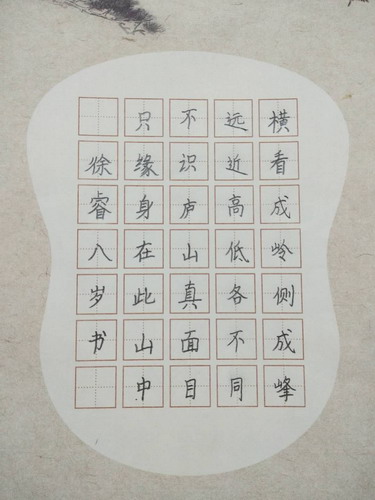 横看成岭侧成峰
远近高低各不同
不识庐山真面目
只缘身在此山中
徐睿八岁书